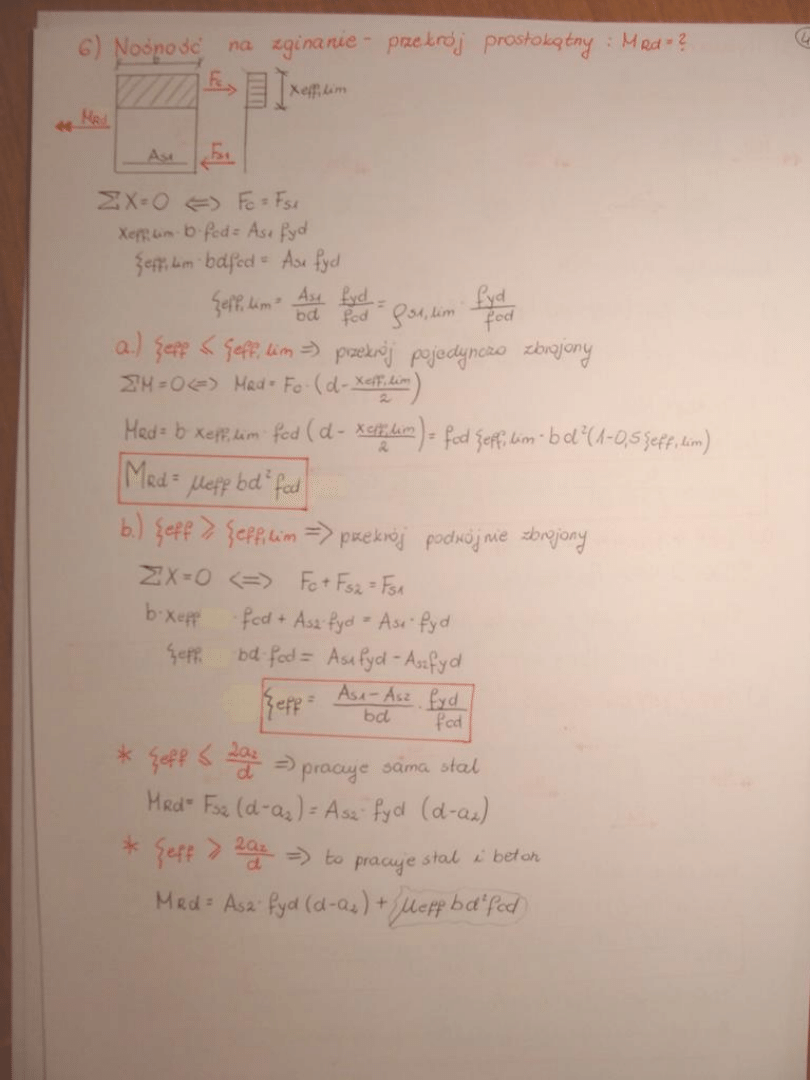 6) Nośność na zginanie - przekrój prostokątny : MRd = ?
b
Fc
xeff,lim
MRd
As1
Fs1
ΣX=0 <=> Fc = Fs1
xeff,lim · b · fcd = As1 fyd
ξeff,lim · bdfcd = As1 fyd
ξeff,lim = As1/bd fyd/fcd = ρs1,lim · fyd/fcd
a.) ξeff ≤ ξeff,lim => przekrój pojedynczo zbrojony
ΣM=0 <=> MRd = Fc · (d - xeff,lim/2)
MRd = b · xeff,lim · fcd (d - xeff,lim/2) = fcd ξeff,lim · bd²(1-0,5ξeff,lim)
MRd = μeff bd² fcd
b.) ξeff ≥ ξeff,lim => przekrój podwójnie zbrojony
ΣX=0 <=> Fc + Fs2 = Fs1
b·xeff · fcd + As2·fyd = As1 · fyd
ξeff, bd·fcd = As1fyd - As2fyd
ξeff = As1-As2/bd · fyd/fcd
* ξeff ≤ 2a2/d => pracuje sama stal
MRd = Fs2 (d-a2) = As2· fyd (d-a2)
* ξeff ≥ 2a2/d => to pracuje stal i beton
MRd = As2· fyd (d-a2) + μeff bd²fcd